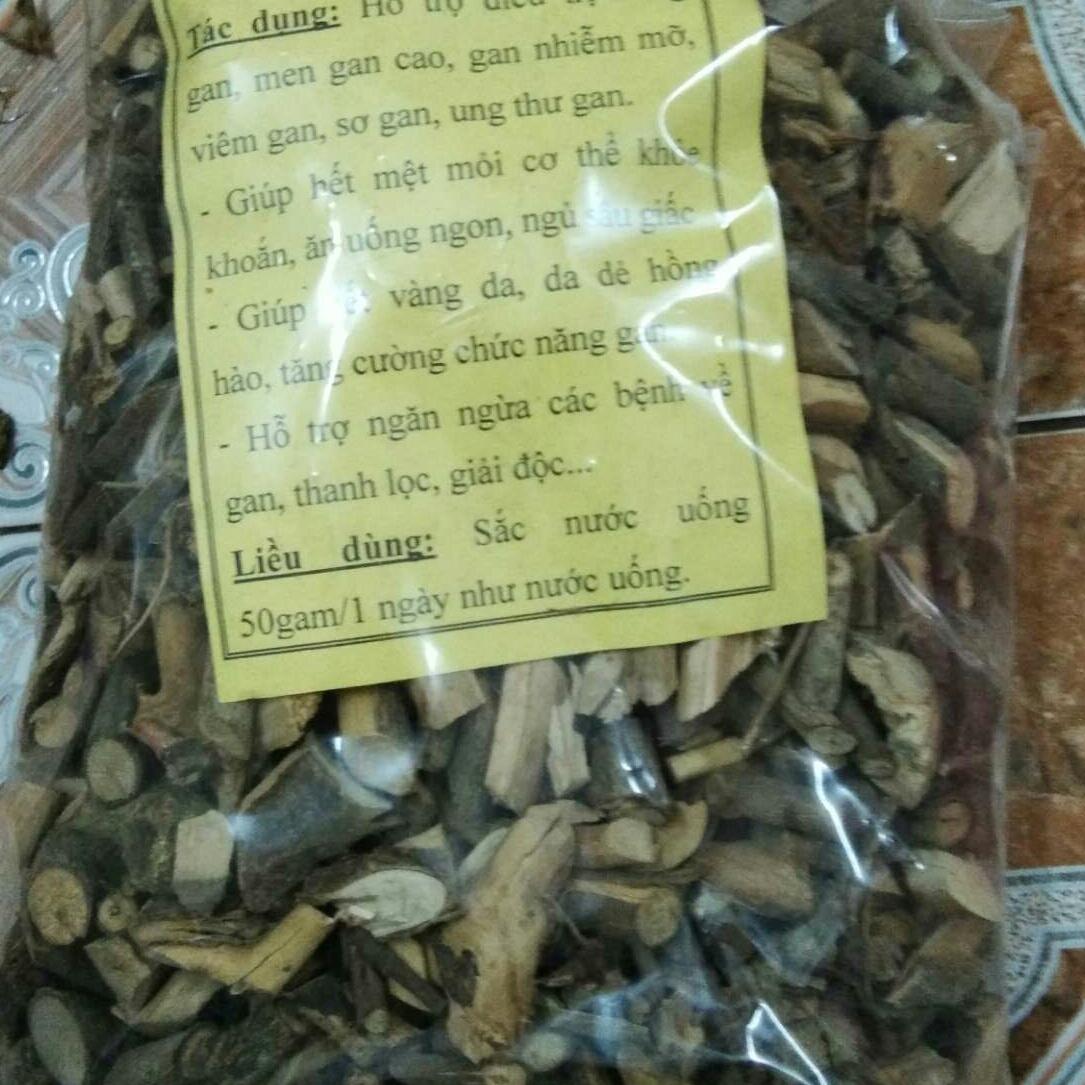 Tác dụng: Hỗ trợ điều
gan, men gan cao, gan nhiễm mỡ,
viêm gan, sơ gan, ung thư gan.
- Giúp hết mệt mỏi cơ thể khỏe
khoắn, ăn uống ngon, ngủ sâu giấc
- Giúp vàng da, da dẻ hồng
hào, tăng cường chức năng gan.
- Hỗ trợ ngăn ngừa các bệnh về
gan, thanh lọc, giải độc...
Liều dùng: Sắc nước uống
50gam/1 ngày như nước uống.